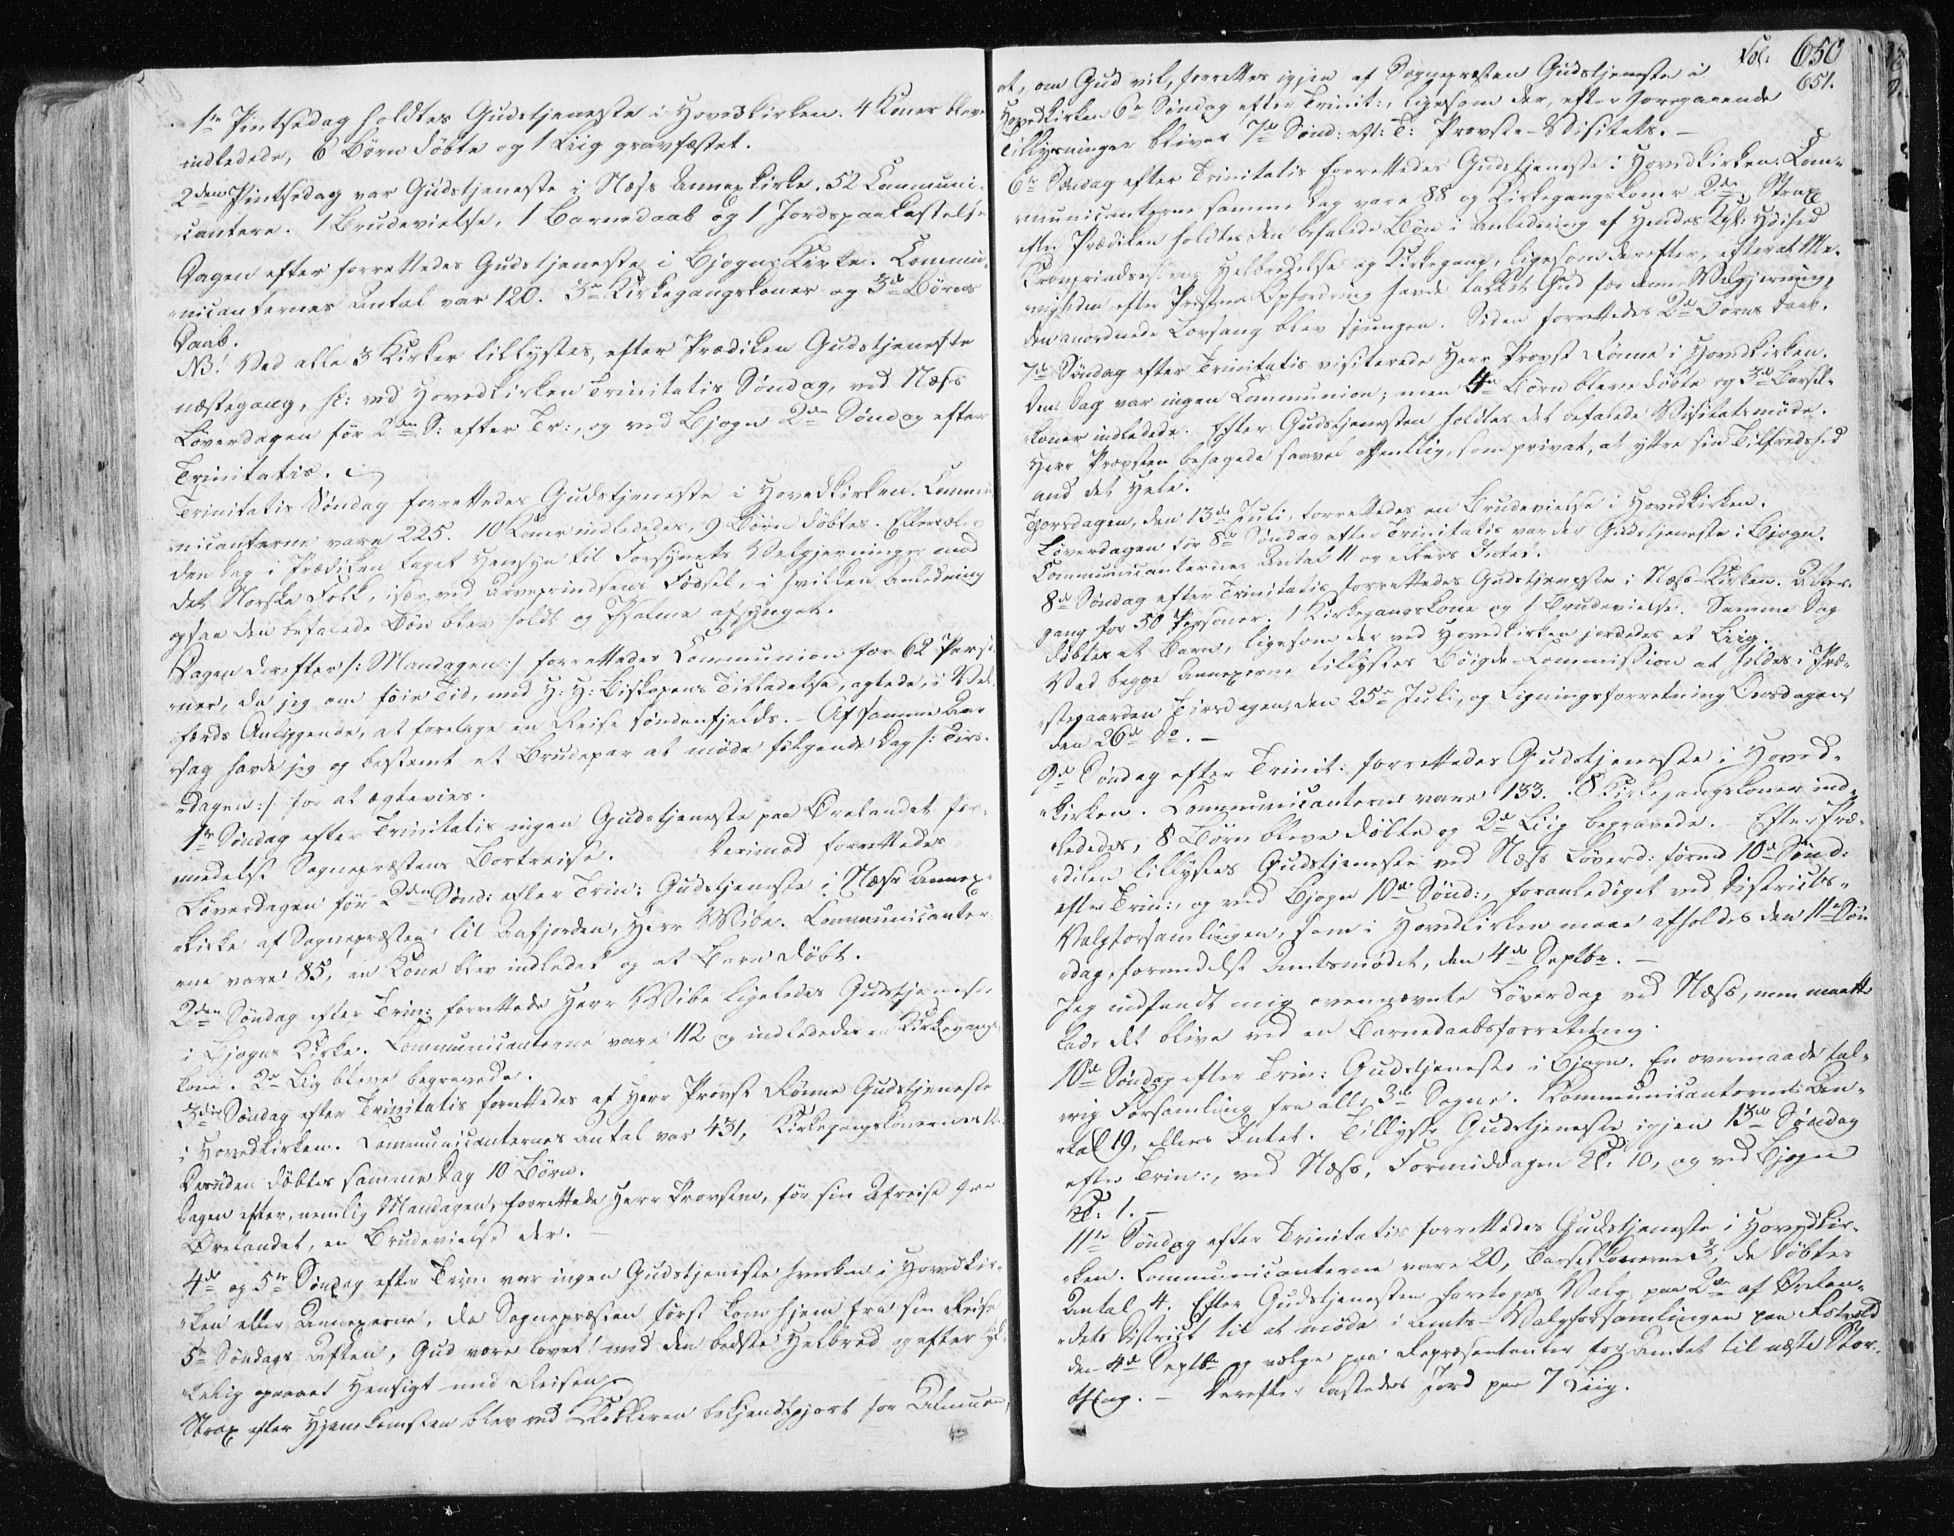 1te Pintsedag holdtes Gudstjeneste i Hovedkirken. 4 Koner bleve
indledede, 6 Børn døbte og 1 Liig gravfæstet.
2den Pintsedag var Gudstjeneste i Næss Annexkirke. 52 Communi-
cantere. 1 Brudevielse, 1 Barnedaab og 1 Jordspaakastelse
Dagen efter forrettedes Gudstjeneste i Bjogns Kirke. Commu-
nicanternes Antal var 120. 3de Kirkegangskoner og 3de Børns
Daab.
NB! Ved alle 3 Kirker tillystes, efter Prædiken Gudstjeneste
næstegang, sc: ved Hovedkirken Trinitatis Søndag, ved Næss
Løverdagen før 2den S: efter Tr:, og ved Bjogn 2den Søndag efter
Trinitatis.
Trinitatis Søndag forrettedes Gudstjeneste i Hovedkirken. Commu-
nicanterne vare 225. 10 Koner indlededes, 9 Børn døbtes.
den Dag i Prædiken taget Hensyn til Forsynets Velgjerninger mod
det Norske Folk, især ved Arveprindsens Fødsel, i hvilken Anledning
ogsaa den befalede Bøn blev holdt og Psalme afsynget.
Dagen derefter /: Mandagen :/ forrettedes Communion for 62 Perso-
ner, da jeg om føie Tid, med H: H: Biskopens Tilladelse, agtede, i Vel-
færds Anliggende, at foretage en Reise søndenfjelds. – Af samme Aar-
sag havde jeg og bestemt et Brudepar at møde følgende Dag /: Tirs-
dagen :/ for at ægtevies.
1te Søndag efter Trinitatis ingen Gudstjeneste paa Ørelandet for-
medelst Sognepræstens Bortreise. Derimod forrettedes
Løverdagen før 2den Sønd: efter Trin: Gudstjeneste i Næss Annex-
kirke af Sognepræsten til Aafjorden, Herr Wibe. Communicanter-
ne vare 85, en Kone blev indledet og et Barn døbt.
2den Søndag efter Trin: forrettede Herr Wibe ligeledes Gudstjeneste
i Bjogns Kirke. Communicanterne vare 112 og indlededes en Kirkegangs-
kone. 2de Lig bleve begravede.
3die Søndag efter Trinitatis forrettedes af Herr Provst Rønne Gudstjeneste
i Hovedkirken. Communicanternes Antal var 431, Kirkegangskonernes 12.
Desuden døbtes samme Dag 10 Børn.
Dagen efter, nemlig Mandagen, forrettede Herr Provsten, før sin Afreise fra
Ørelandet, en Brudevielse der. –
4de og 5te Søndag efter Trin: var ingen Gudstjeneste hverken i Hovedkir-
ken eller Annexerne, da Sognepræsten først kom hjem fra sin Reise
5te Søndags Aften, Gud være lovet! med den bedste Helbred og efter lyk-
kelig opnaaet Hensigt med Reisen.
Strax efter Hjemkomsten blev ved Klokkeren bekjendtgjort for Almuen,
Fol: 650
651.
at, om Gud vil, forrettes igjen af Sognepræsten Gudstjeneste i
Hovedkirken 6te Søndag efter Trinit:, ligesom der, efter foregaaende
Tillysninger bliver 7de Sønd: eft: T: Provste-Visitats. –
6te Søndag efter Trinitatis forrettedes Gudstjeneste i Hovedkirken. Com-
municanterne samme Dag vare 88 og Kirkegangskoner 2de. Strax
efter Prædiken holdtes den befalede Bøn i Anledning af Hendes Kgl: Høihed
Kronprindsessens Helbredelse og Kirkegang, ligesom derefter, efterat Me-
nigheden efter Præstens Opfordring havde takket Gud for denne Velgjerning,
den anordnede Lovsang blev sjungen. Siden forrettedes 2de Børns Daab.
7de Søndag efter Trinitatis visiterede Herr Provst Rønne i Hovedkirken.
Den Dag var ingen Communion; men 4re Børn bleve døbte og 3de Barsel-
koner indledede. Efter Gudstjenesten holdtes det befalede Visitatsmøde.
Herr Provsten behagede saavel offentlig, som privat, at yttre sin Tilfredshed
med det Hele.
Torsdagen, den 13de Juli, forrettedes en Brudevielse i Hovedkirken.
Løverdagen før 8de Søndag efter Trinitatis var der Gudstjeneste i Bjogn.
Communicanternes Antal 11 og ellers Intet.
8de Søndag efter Trinitatis forrettedes Gudstjeneste i Næss-Kirken. Alter-
gang for 50 Personer. 1 Kirkegangskone og 1 Brudevielse. Samme Dag
døbtes et Barn, ligesom der ved Hovedkirken jordedes et Liig.
Ved begge Annexerne tillystes Bøigde-Commission at holdes i Præ-
stegaarden Tirsdagen, den 25de Juli, og Ligningsforretning Onsdagen,
den 26de do. –
9de Søndag efter Trinit: forrettedes Gudstjeneste i Hoved-
kirken. Communicanterne vare 133. 8 Kirkegangskoner ind-
lededes, 8 Børn bleve døbte og 2de Liig begravede. Efter Præ-
diken tillystes Gudstjeneste ved Næss Løverd: førend 10de Sønd:
efter Trin:, og ved Bjogn 10de Sønd:, foranlediget ved Districts-
Valgforsamlingen, som i Hovedkirken maae afholdes den 11te Søn-
dag, formedelst Amtsmødet, den 4de Septbr. –
Jeg indfandt mig ovennævnte Løverdag ved Næss, men maatte
lade det blive ved en Barnedaabsforretning.
10de Søndag efter Trin: Gudstjeneste i Bjogn. En overmaade tal-
rig Forsamling fra alle 3de Sogne. Kommunicanternes An-
tal 19, ellers Intet. Tillyste Gudstjeneste igjen 13de Søndag
efter Trin:, ved Næss, Formiddagen Kl. 10, og ved Bjogn
Kl. 1. –
11te Søndag efter Trinitatis forrettedes Gudstjeneste i Hovedkir-
ken. Communicanterne vare 20, Barselkonerne 3, de Døbtes
Antal 4. Efter Gudstjenesten foretoges Valg paa 2de af Ørelan-
dets District til at møde i Amts-Valgforsamlingen paa
den 4de Septbr og vælge paa Repræsentanter for Amtet til næste Stor-
thing. – Derefter kastedes Jord paa 7 Liig.